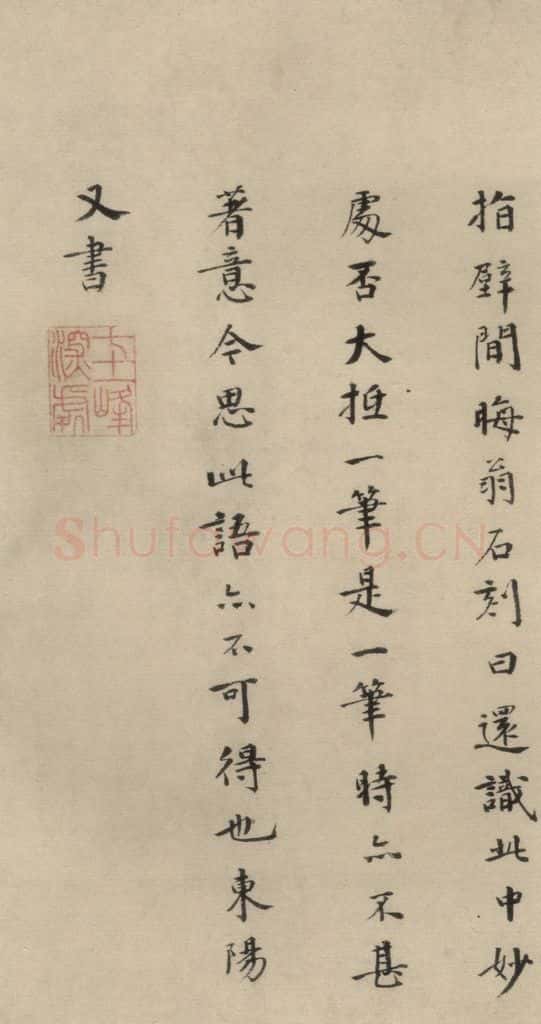 指壁間晦翁石刻曰還識此中妙
處否大抵一筆是一筆時亦不甚
著意今思此語亦不可得也東陽
又書
Shufawang.CN